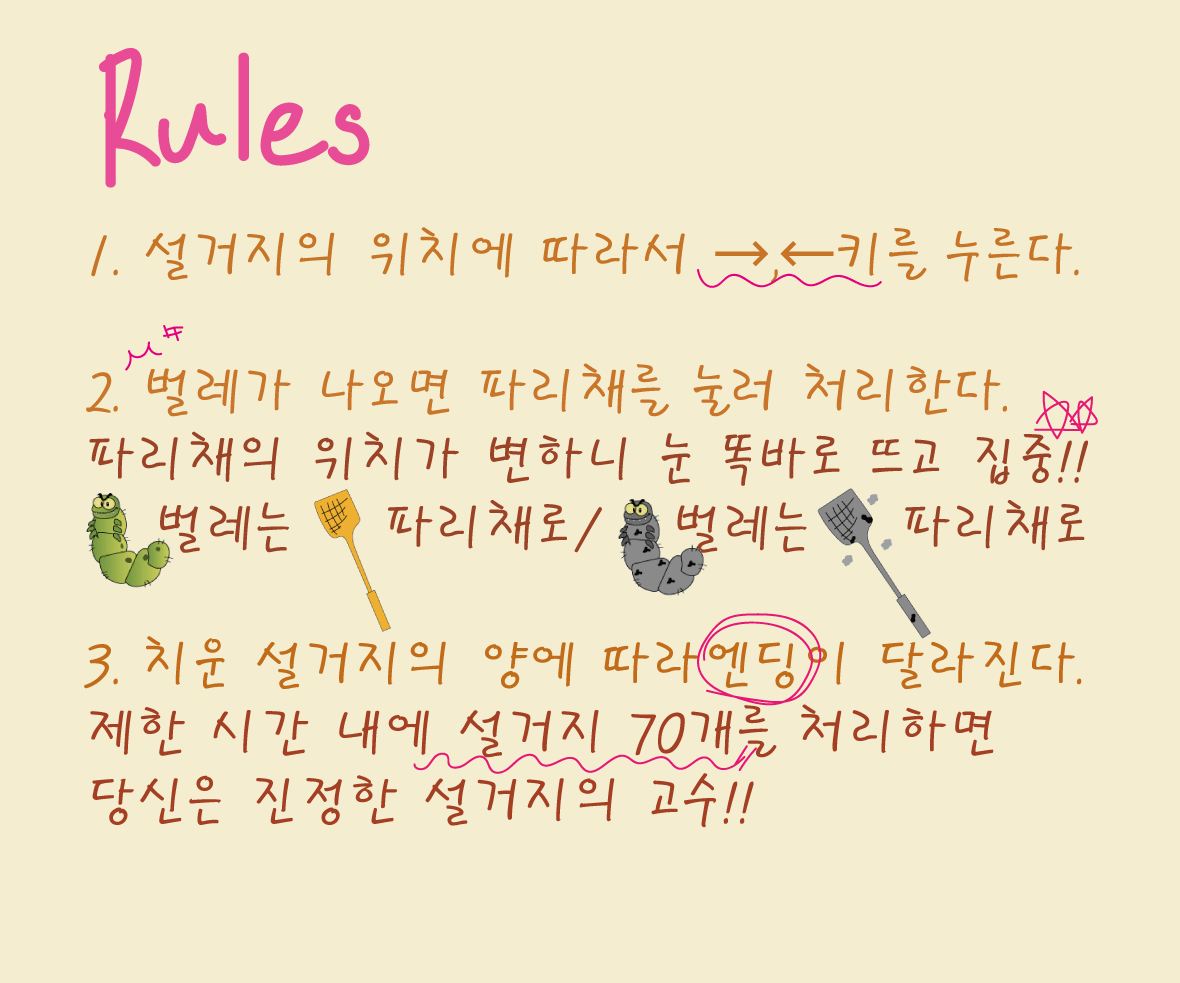 Rules
1. 설거지의 위치에 따라서 →,←키를 누른다.
2. 벌레가 나오면 파리채를 눌러 처리한다.
파리채의 위치가 변하니 눈 똑바로 뜨고 집중!!
벌레는 파리채로/ 벌레는 파리채로
3. 치운 설거지의 양에 따라 엔딩이 달라진다.
제한 시간 내에 설거지 70개를 처리하면
당신은 진정한 설거지의 고수!!